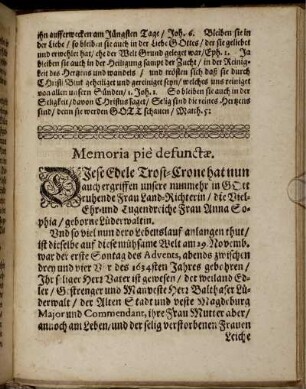 ihn aufferwecken am Jüngsten Tage / Joh. 6. Bleiben sie in
der Liebe / so bleiben sie auch in der Liebe Gottes / der sie geliebet
und erwehlet hat / ehe der Welt Grund geleget war / Eph. 1. Ja
bleiben sie auch in der Heiligung sampt der Zucht / in der Reinig-
keit des Hertzens und wandels / und wissen sich daß sie durch
Christi Blut geheiliget und gereiniget seyn / welches uns reiniget
von allen unsern Sünden / 1. Joh. 1. So bleiben sie auch in der
Seligkeit / davon Christus saget / Selig sind die reines Hertzens
sind / denn sie werden GOTT schauten / Matth. 5:
Memoria piè defunctæ.
DIese Edele Trost-Crone hat nun
auch ergriffen unsere nunmehr in GOtt
ruhende Frau Land-Richterin / die Viel-
Ehr-und Tugendreiche Frau Anna So-
phia / geborne Lüderwaltin.
Und so viel nun dero Lebenslauf anlangen thut /
ist dieselbe auf diese mühsame Welt am 29 Novemb.
war der erste Sontag des Advents, abends zwischen
drey und vier Uhr des 1634sten Jahres gebohren /
Ihr seliger Herr Vater ist gewesen / der weiland Ed-
ler / Gestrenger und Manveste Herr Balthasar Lü-
derwalt / der Alten Stadt und veste Magdeburg
Major und Commendant, ihre Frau Mutter aber /
annoch am Leben / und der selig verstorbenen Frauen
Leiche